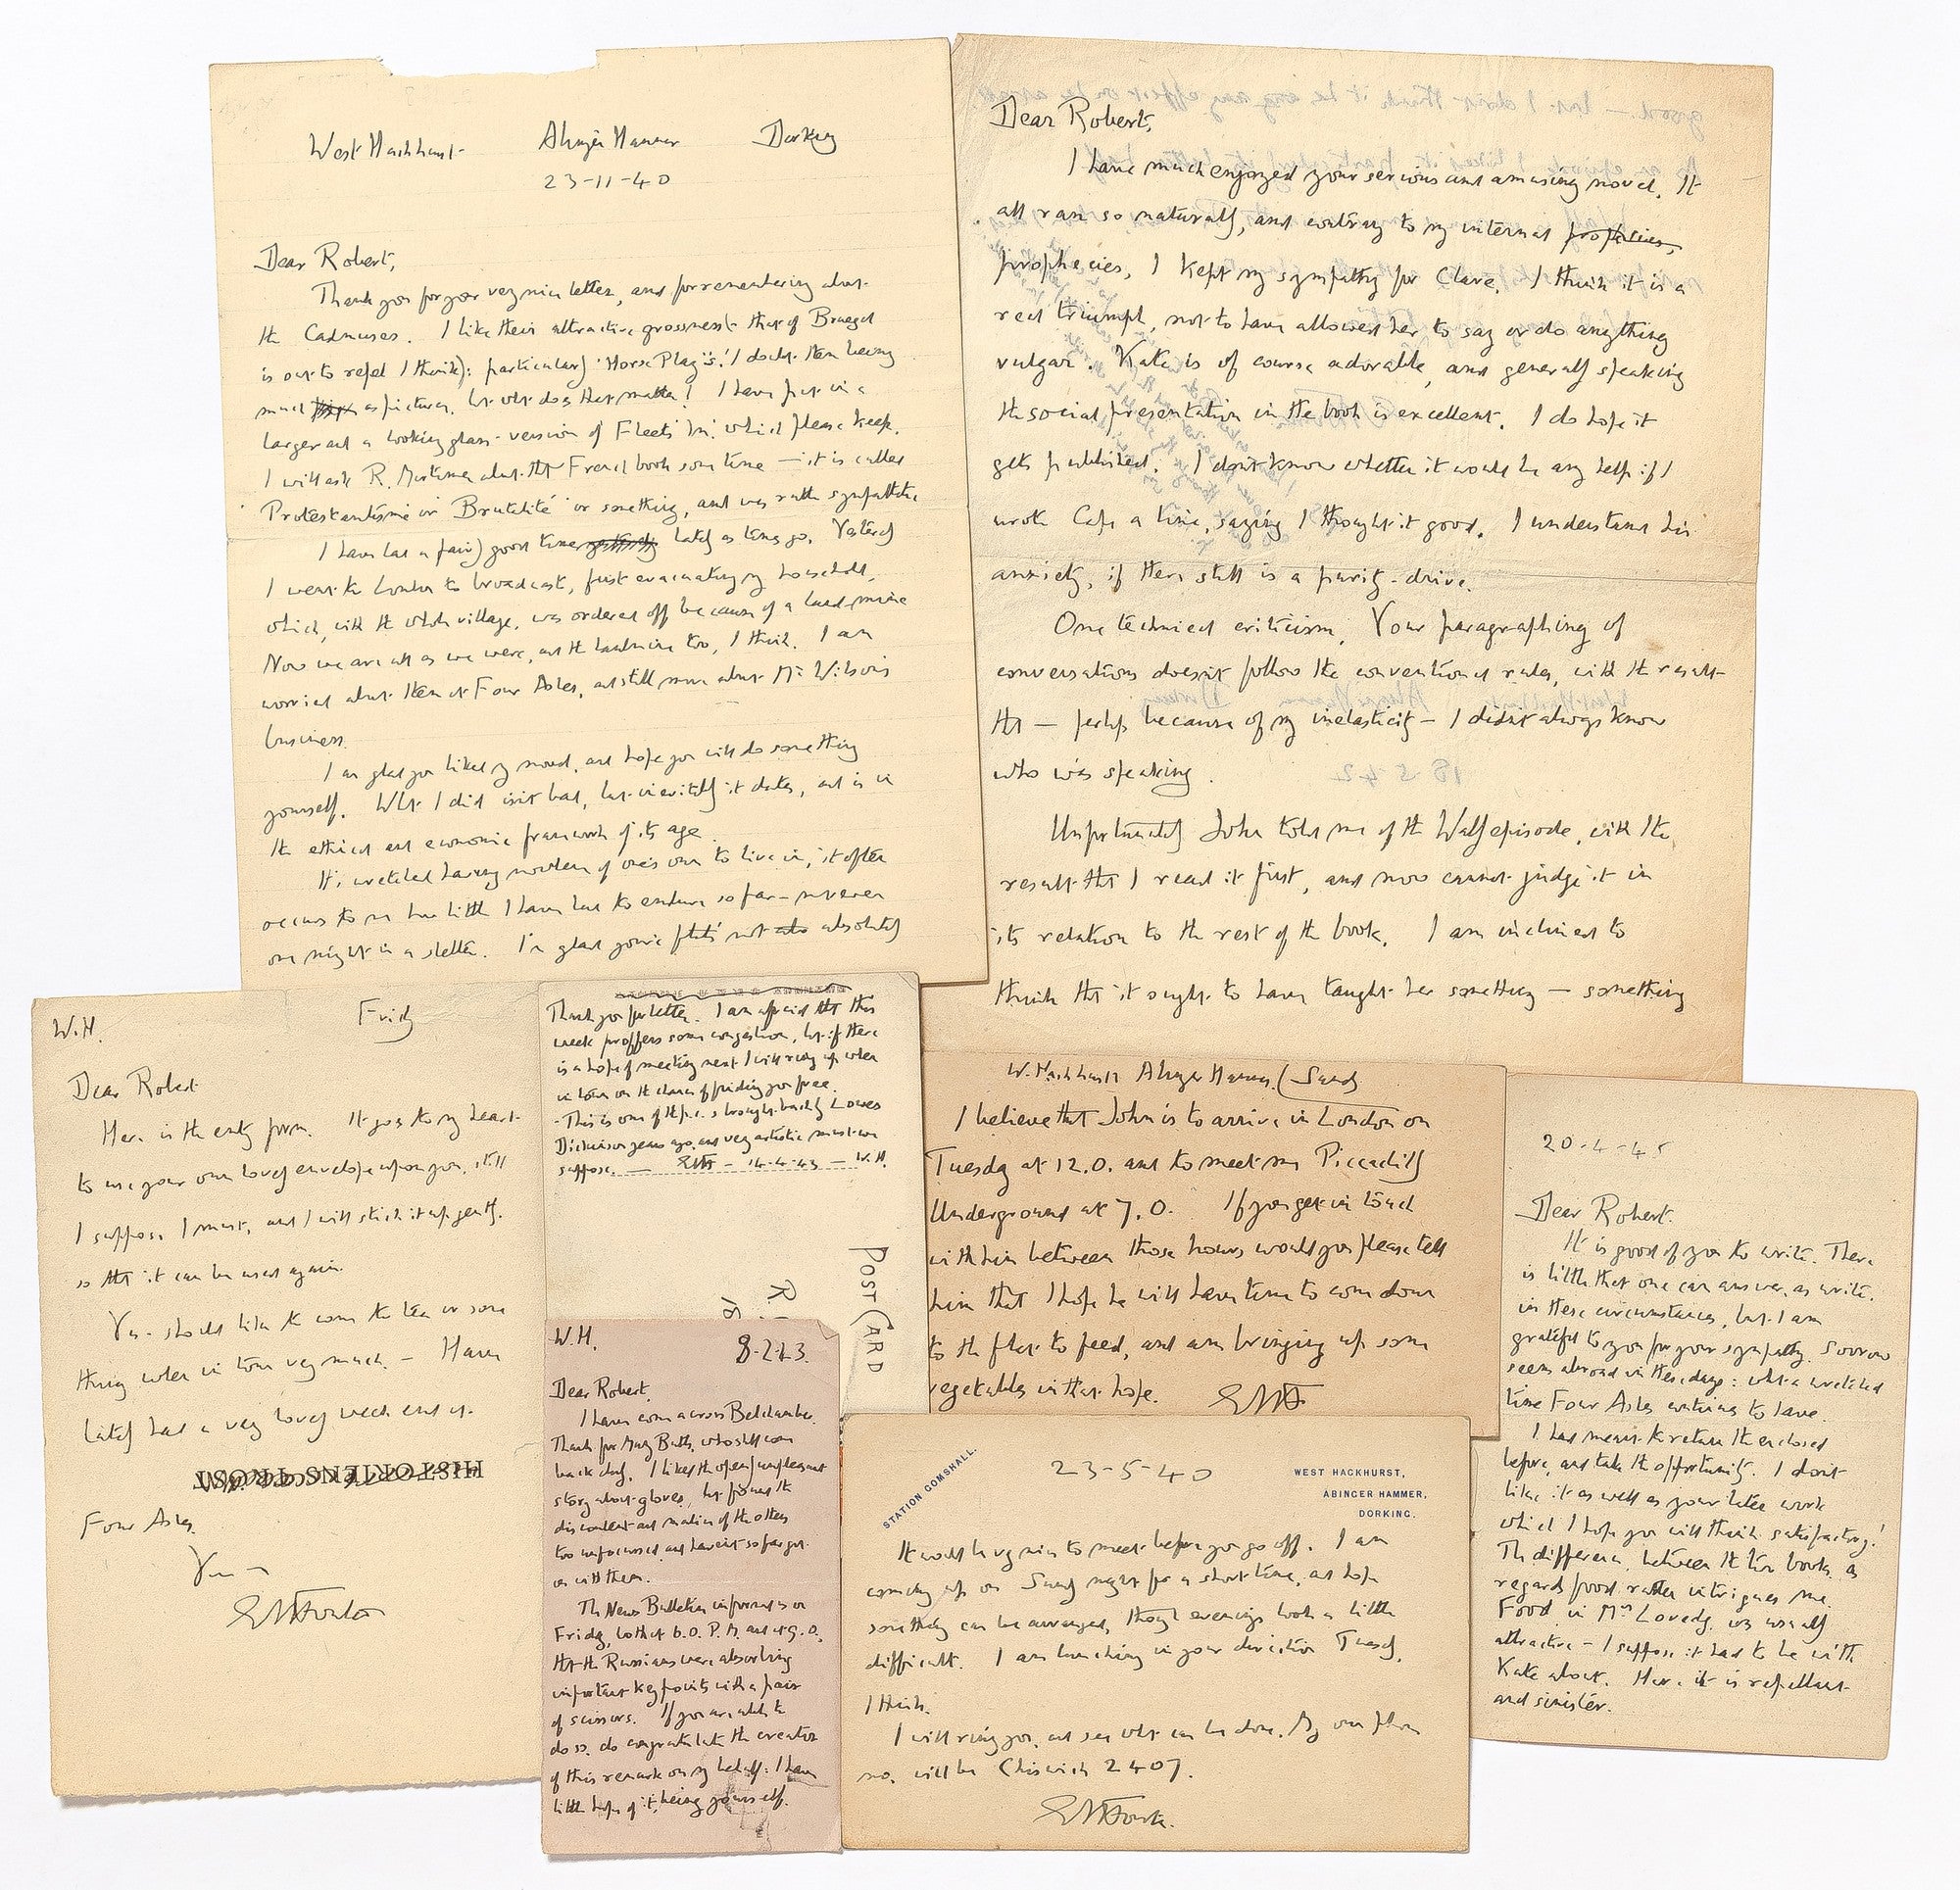 West Hackhurst Abinger Hammer Dorking
23-11-40
Dear Robert,
Thank you for your very nice letter, and for remembering about
the Cadmuses. I like their attractive grossness (that of Bruegel
is out to repel I think): particularly 'Horse Play's'. I doubt them being
much as pictures, but what does that matter? I have put in a
larger and a looking glass version of 'Fleet's In'. which please keep.
I will ask R. Mortimer about that French book some time — it is called
Protestantisme or Brutalité or something, and was rather sympathetic
I have had a fairly good time lately as times go. Yesterday
I went to London to broadcast, first evacuating my household,
which, with the whole village, was ordered off because of a land mine
Now we are all as we were, and the landmine too, I think. I am
worried about them at Four Ashes, and still more about Mr Wilson's
business.
I am glad you liked my novel, and hope you will do something
yourself. What I did isn't bad, but inevitably it dates, and is in
the ethical and economic framework of its age.
It's wretched having nowhere of one's own to live in, it often
occurs to me how little I have had to endure so far — never even
one night in a shelter. I'm glad your flat's not absolutely
Dear Robert,
I have much enjoyed your serious and amusing novel. It
all ran so naturally, and contrary to my internal prophecies,
prophecies, I kept my sympathy for Clare. I think it is a
real triumph, not to have allowed her to say or do anything
vulgar. Kate is of course adorable, and generally speaking
the social presentation in the book is excellent. I do hope it
gets published. I don't know whether it would be any help if I
wrote Cape a line, saying I thought it good. I understand his
anxiety, if there still is a purity-drive.
One technical criticism. Your paragraphing of
conversations doesn't follow the conventional rules, with the result
that — perhaps because of my inelasticity — I didn't always know
who was speaking.
Unfortunately John told me of the Wolf episode, with the
result that I read it first, and now cannot judge it in
its relation to the rest of the book. I am inclined to
think that it ought to have taught her something — something
W.H. Friday
Dear Robert
Here is the entry form. It goes to my heart
to use your own lovely envelope upon you, still
I suppose I must, and I will stick it up gently.
so that it can be used again.
Yes - should like to come to tea or some
thing when in town very much. — Have
lately had a very lovely week end at
HISTORIZENS TROST
Four Ashes.
Yours
EMForster
Thank you for letter. I am afraid that this
week proffers some congestion, but if there
is a hope of meeting next I will ring up when
in town on the chance of finding you free.
- This is one of the p.c.s brought back by Lowes
Dickinson years ago, and very artistic must we
suppose. — EMF — 14-4-43 — W.H.
POST CARD
R.
18
W. Hackhurst Abinger Hammer. (Sunday
I believe that John is to arrive in London on
Tuesday at 12.0. and to meet me Piccadilly
Underground at 7.0. If you get in touch
with him between those hours would you please tell
him that I hope he will have time to come down
to the flat to feed, and am bringing up some
vegetables in that hope. EMF
W.H. 8-2-43.
Dear Robert,
I have come across Belchamber.
Thanks for Mary Butts, who shall come
back duly. I liked the open unpleasant
story about gloves, but found the
discontent and malice of the others
too unfocussed and haven't so far got
on with them.
The News Bulletin informed us on
Friday, both at 6.0. P.M. and at 9.0.,
that the Russians were absorbing
important key points with a pair
of scissors. If you are able to
do so, do congratulate the creator
of this remark on my behalf: I have
little hope of it being yourself.
STATION GOMSHALL.
23-5-40
WEST HACKHURST,
ABINGER HAMMER,
DORKING.
It would be very nice to meet before you go off. I am
coming up on Sunday night for a short time, and hope
something can be arranged, though evenings look a little
difficult. I am lunching in your direction Tuesday,
I think.
I will ring you, and see what can be done. My own phone
no. will be Chiswick 2407.
EMForster.
20-4-45
Dear Robert.
It is good of you to write. There
is little that one can answer, as write.
in these circumstances, but I am
grateful to you for your sympathy. Sorrow
seems abroad in these days: what a wretched
time Four Ashes continues to have.
I had meant to return the enclosed
before, and take the opportunity. I don't
like it as well as your later work
which I hope you will think satisfactory!
The difference between the two books as
regards food rather intrigues me.
Food in Mrs Loveday was usually
attractive — I suppose it had to be with
Kate about. Here it is repellant
and sinister.